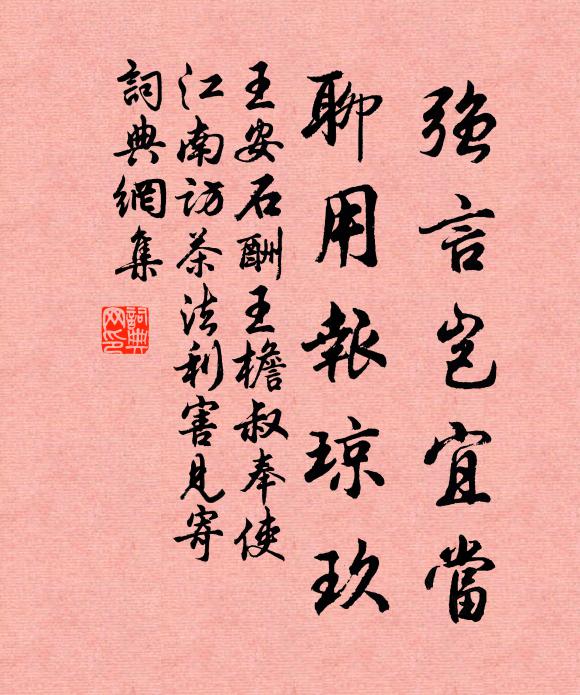 強言豈宜當
聊用報琼玖
王安石酬王檐叔奉使
江南訪茶法利害見寄
詞典網集
詞典网印